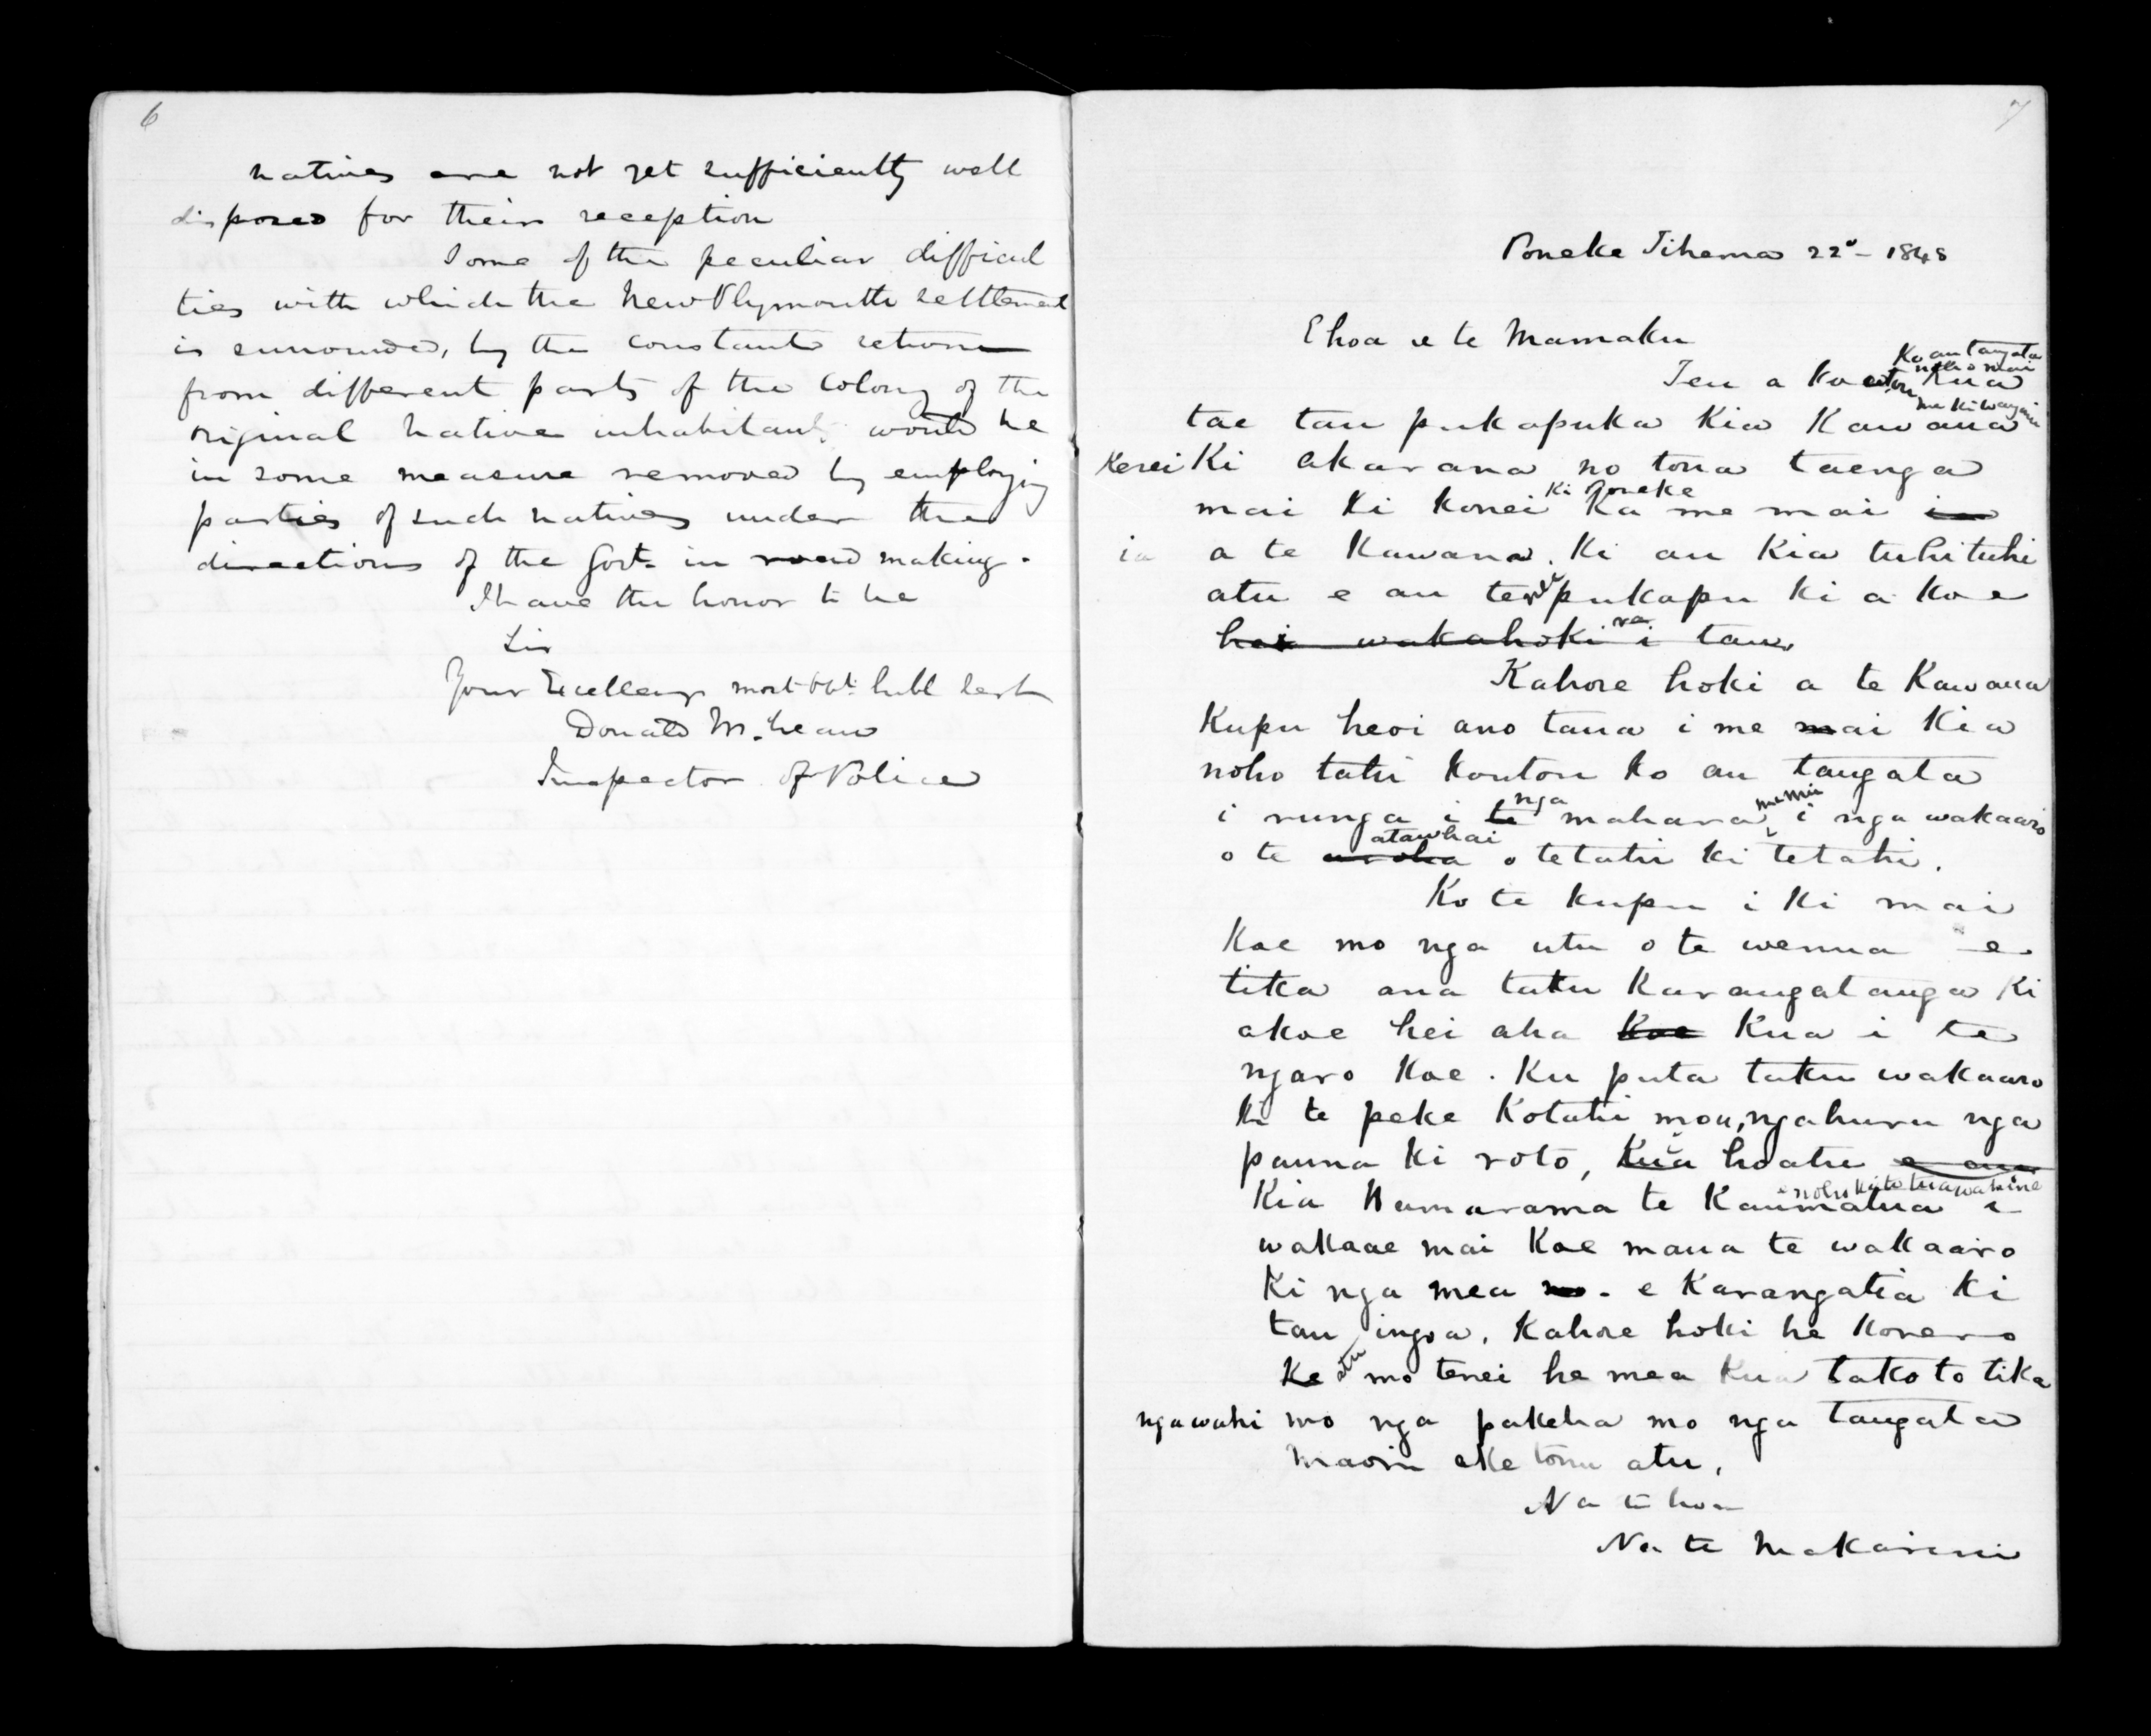 6
natives are not yet sufficiently well
disposed for their reception
Some of the peculiar difficul
ties with which the New Plymouth settlement
is surrounded, by the constant return
from different parts of the Colony of the
original native inhabitants would be
in some measure removed by employing
parties of such natives under the
directions of the Govt. in road making.
I have the honor to be
Sir
Your Excellency most obt. hubl servt
Donald McLean
Inspector of Police
7
Poneke Tihema 22d - 1848
E hoa e te Mamaku
Ko au tangata
noho mai
Tena koutou Kua
me ki Wanganui
tae tau pukapuka Kia Kawana
Kerei Ki Akarana no tona taenga
mai ki konei ki Poneke Ka me mai ia
ia a te Kawana. Ki au Kia tuhituhi
atu e au tenei pukapu ki a koe
hei wakahoki ra i tau
Kahore hoki a te Kawana
Kupu heoi ano tana i me mai Kia
noho tahi koutou ko au tangata
i runga i te nga mahara me nui i nga wakaaro
o te aroha atawhai o tetahi ki tetahi.
Ko te kupu i ki mai
Koe mo nga utu o te wenua e
tika ana taku Karangatanga Ki
akoe hei aha koe Kua i te
ngaro koe. Ku puta taku wakaaro
ki te peke Kotahi mou, ngahuru nga
pauna ki roto, Kua hoatu e au
e noho ki te tuawahine
Kia Hamarama te Kaumatua i
wakaae mai Koe mana te wakaaro
Ki nga mea no. e Karangatia ki
tau ingoa. Kahore hoki he korero
Ke atu mo tenei he mea Kua takoto tika
nga wahi mo nga pakeha mo nga tangata
maori ake tonu atu.
Na to hoa
Na te Makarini